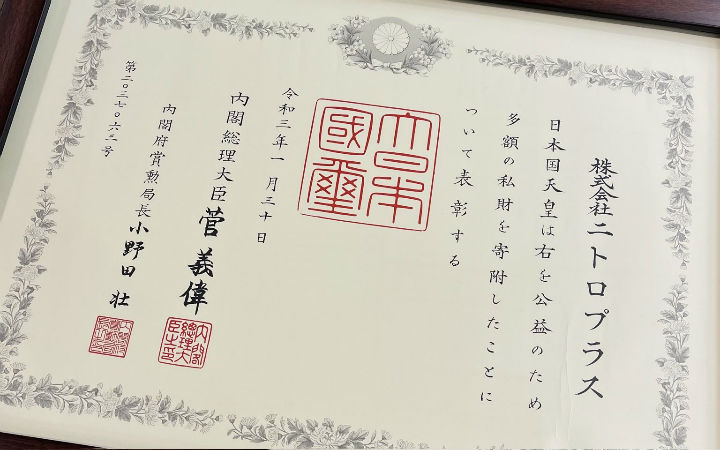 株式会社ニトロプラス
日本国天皇は右を公益のため
多額の私財を寄附したことに
ついて表彰する
大日本
國璽
令和三年一月三十日
内閣総理大臣菅義偉
内閣総理大
臣之印
内閣府賞勲局長小野田壮